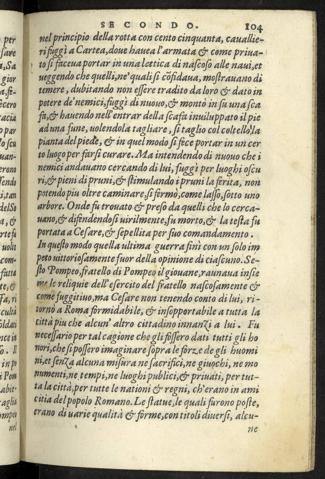 SECONDO. 104
nel principio della rotta con cento cinquanta, cavallie-
ri fuggì a Cartea, dove havea l'armata & come priua-
to si faceua portar in una lettica di nascoso alle naui, et
ueggendo che quelli, ne'quali si cōfidaua, mostrauano di
temere, dubitando non essere tradito da loro & dato in
potere de'nemici, fuggì di nuouo, & montò in su una sca
fa, & hauendo nell'entrar della scafa inuiluppato il pie
ad una fune, uolendola tagliare, si taglio col coltello la
pianta del piede, & in quel modo si fece portar in un cer
to luogo per farsi curare. Ma intendendo di nuouo che i
nemici andauano cercando di lui, fuggì per luoghi oscu
ri, & pieni di pruni, & stimulando i pruni la ferita, non
potendo piu oltre caminare, si firmo, come lasso, sotto uno
arbore. Onde fu trouato & preso da quelli che lo cerca-
uano, & difendendosi uirilmente, fu morto, & la testa fu
portata a Cesare, & sepellita per suo comandamento.
In questo modo quella ultima guerra finì con un solo im
peto uittoriosamente fuor della opinione di ciascuno. Se-
sto Pompeo, fratello di Pompeo il giouane, raunaua insie
me le reliquie dell'esercito del fratello nascosamente &
come fuggitiuo, ma Cesare non tenendo conto di lui, ri-
tornò a Roma formidabile, & insopportabile a tutta la
città piu che alcun' altro cittadino innanzi a lui. Fu
necessario per tal cagione che gli fissero dati tutti gli ho
nori, che si possero imaginare sopra le forze de gli huomi
ni, et senza alcuna misura ne sacrifici, ne giuochi, ne mo
numenti, ne tempi, ne luoghi publici, & priuati, per tut-
ta la città, per tutte le nationi & regni, ch'erano in ami
citia del popolo Romano. Le statue, le quali furono poste,
erano di uarie qualità & forme, con titoli diuersi, alcu-
ne